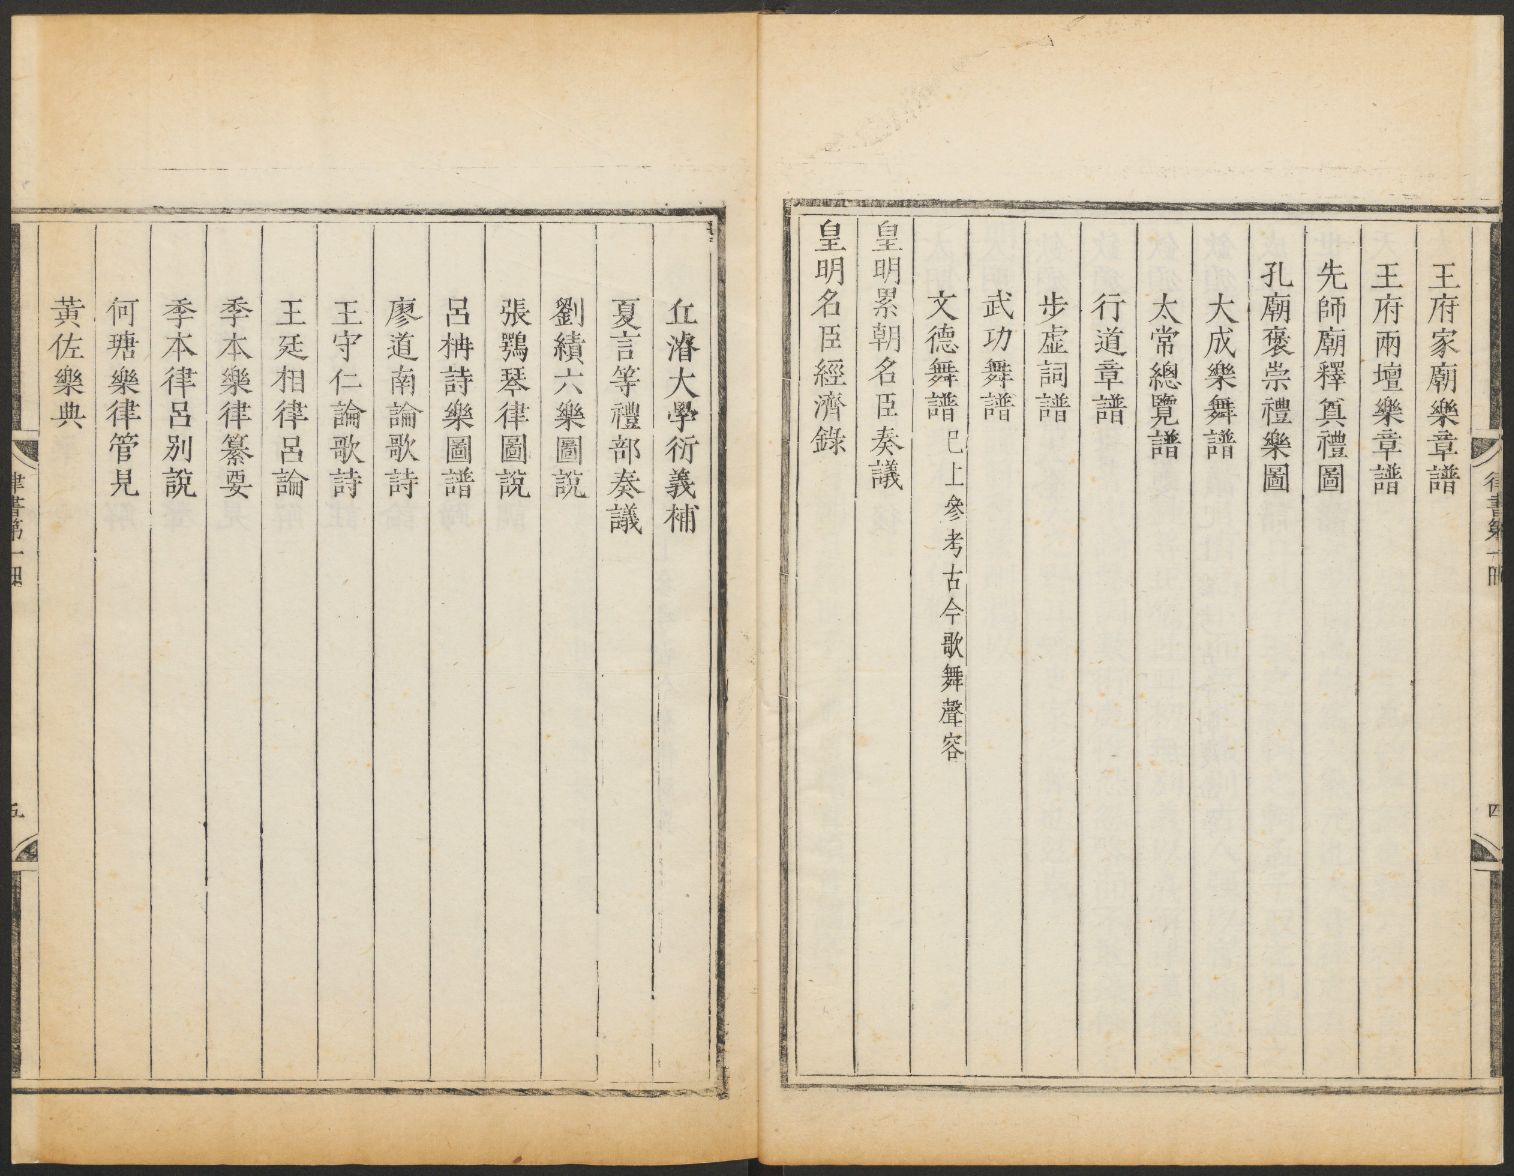 王府家廟樂章譜
王府兩壇樂章譜
先師廟釋奠禮圖
孔廟褒崇禮樂圖
大成樂舞譜
太常總覽譜
行道章譜
步虛詞譜
武功舞譜
文德舞譜 已上參考古今歌舞聲容
皇明累朝名臣奏議
皇明名臣經濟錄
律書第一冊
四
丘濬大學衍義補
夏言等禮部奏議
劉績六樂圖說
張鶚琴律圖說
呂柟詩樂圖譜
廖道南論歌詩
王守仁論歌詩
王廷相律呂論
季本樂律纂要
季本律呂別說
何瑭樂律管見
黃佐樂典
律書第一冊
五